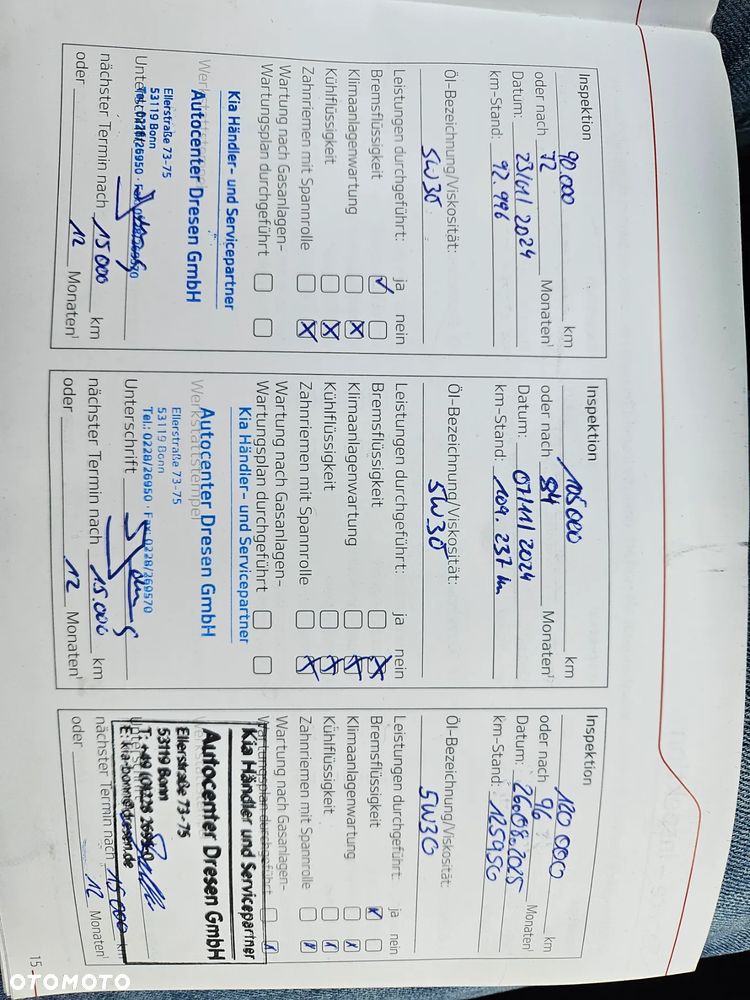 Inspektion
90.000 km
oder nach 72 Monaten¹
Datum: 23/01/2024
km-Stand: 92.996
Öl-Bezeichnung/Viskosität:
5W30
Leistungen durchgeführt: ja nein
Bremsflüssigkeit
Klimaanlagenwartung
Kühlflüssigkeit
Zahnriemen mit Spannrolle
Wartung nach Gasanlagen-
Wartungsplan durchgeführt
Kia Händler- und Servicepartner
Autocenter Dresen GmbH
Ellerstraße 73-75
53119 Bonn
Tel.: 0228/26950
nächster Termin nach 15 000 km
oder 12 Monaten¹
Inspektion
105000 km
oder nach 84 Monaten¹
Datum: 07/11/2024
km-Stand: 109.237 km
Öl-Bezeichnung/Viskosität:
5W30
Leistungen durchgeführt: ja nein
Bremsflüssigkeit
Klimaanlagenwartung
Kühlflüssigkeit
Zahnriemen mit Spannrolle
Wartung nach Gasanlagen-
Wartungsplan durchgeführt
Kia Händler- und Servicepartner
Autocenter Dresen GmbH
Werkstattstempel
Ellerstraße 73-75
53119 Bonn
Tel.: 0228/26950 · Fax 0228/269570
Unterschrift
nächster Termin nach 15.000 km
oder 12 Monaten¹
Inspektion
120 000 km
oder nach 96 Monaten¹
Datum: 26.08.2025
km-Stand: 125950
Öl-Bezeichnung/Viskosität:
5W30
Leistungen durchgeführt: ja nein
Bremsflüssigkeit
Klimaanlagenwartung
Kühlflüssigkeit
Zahnriemen mit Spannrolle
Wartung nach Gasanlagen-
Wartungsplan durchgeführt
Kia Händler und Servicepartner
Autocenter Dresen GmbH
Ellerstraße 73-75
53119 Bonn
T: +49 (0)228 26950
E: kia-bonn@dresen.de
nächster Termin nach 15 000 km
oder 12 Monaten¹
15
OTOMOTO